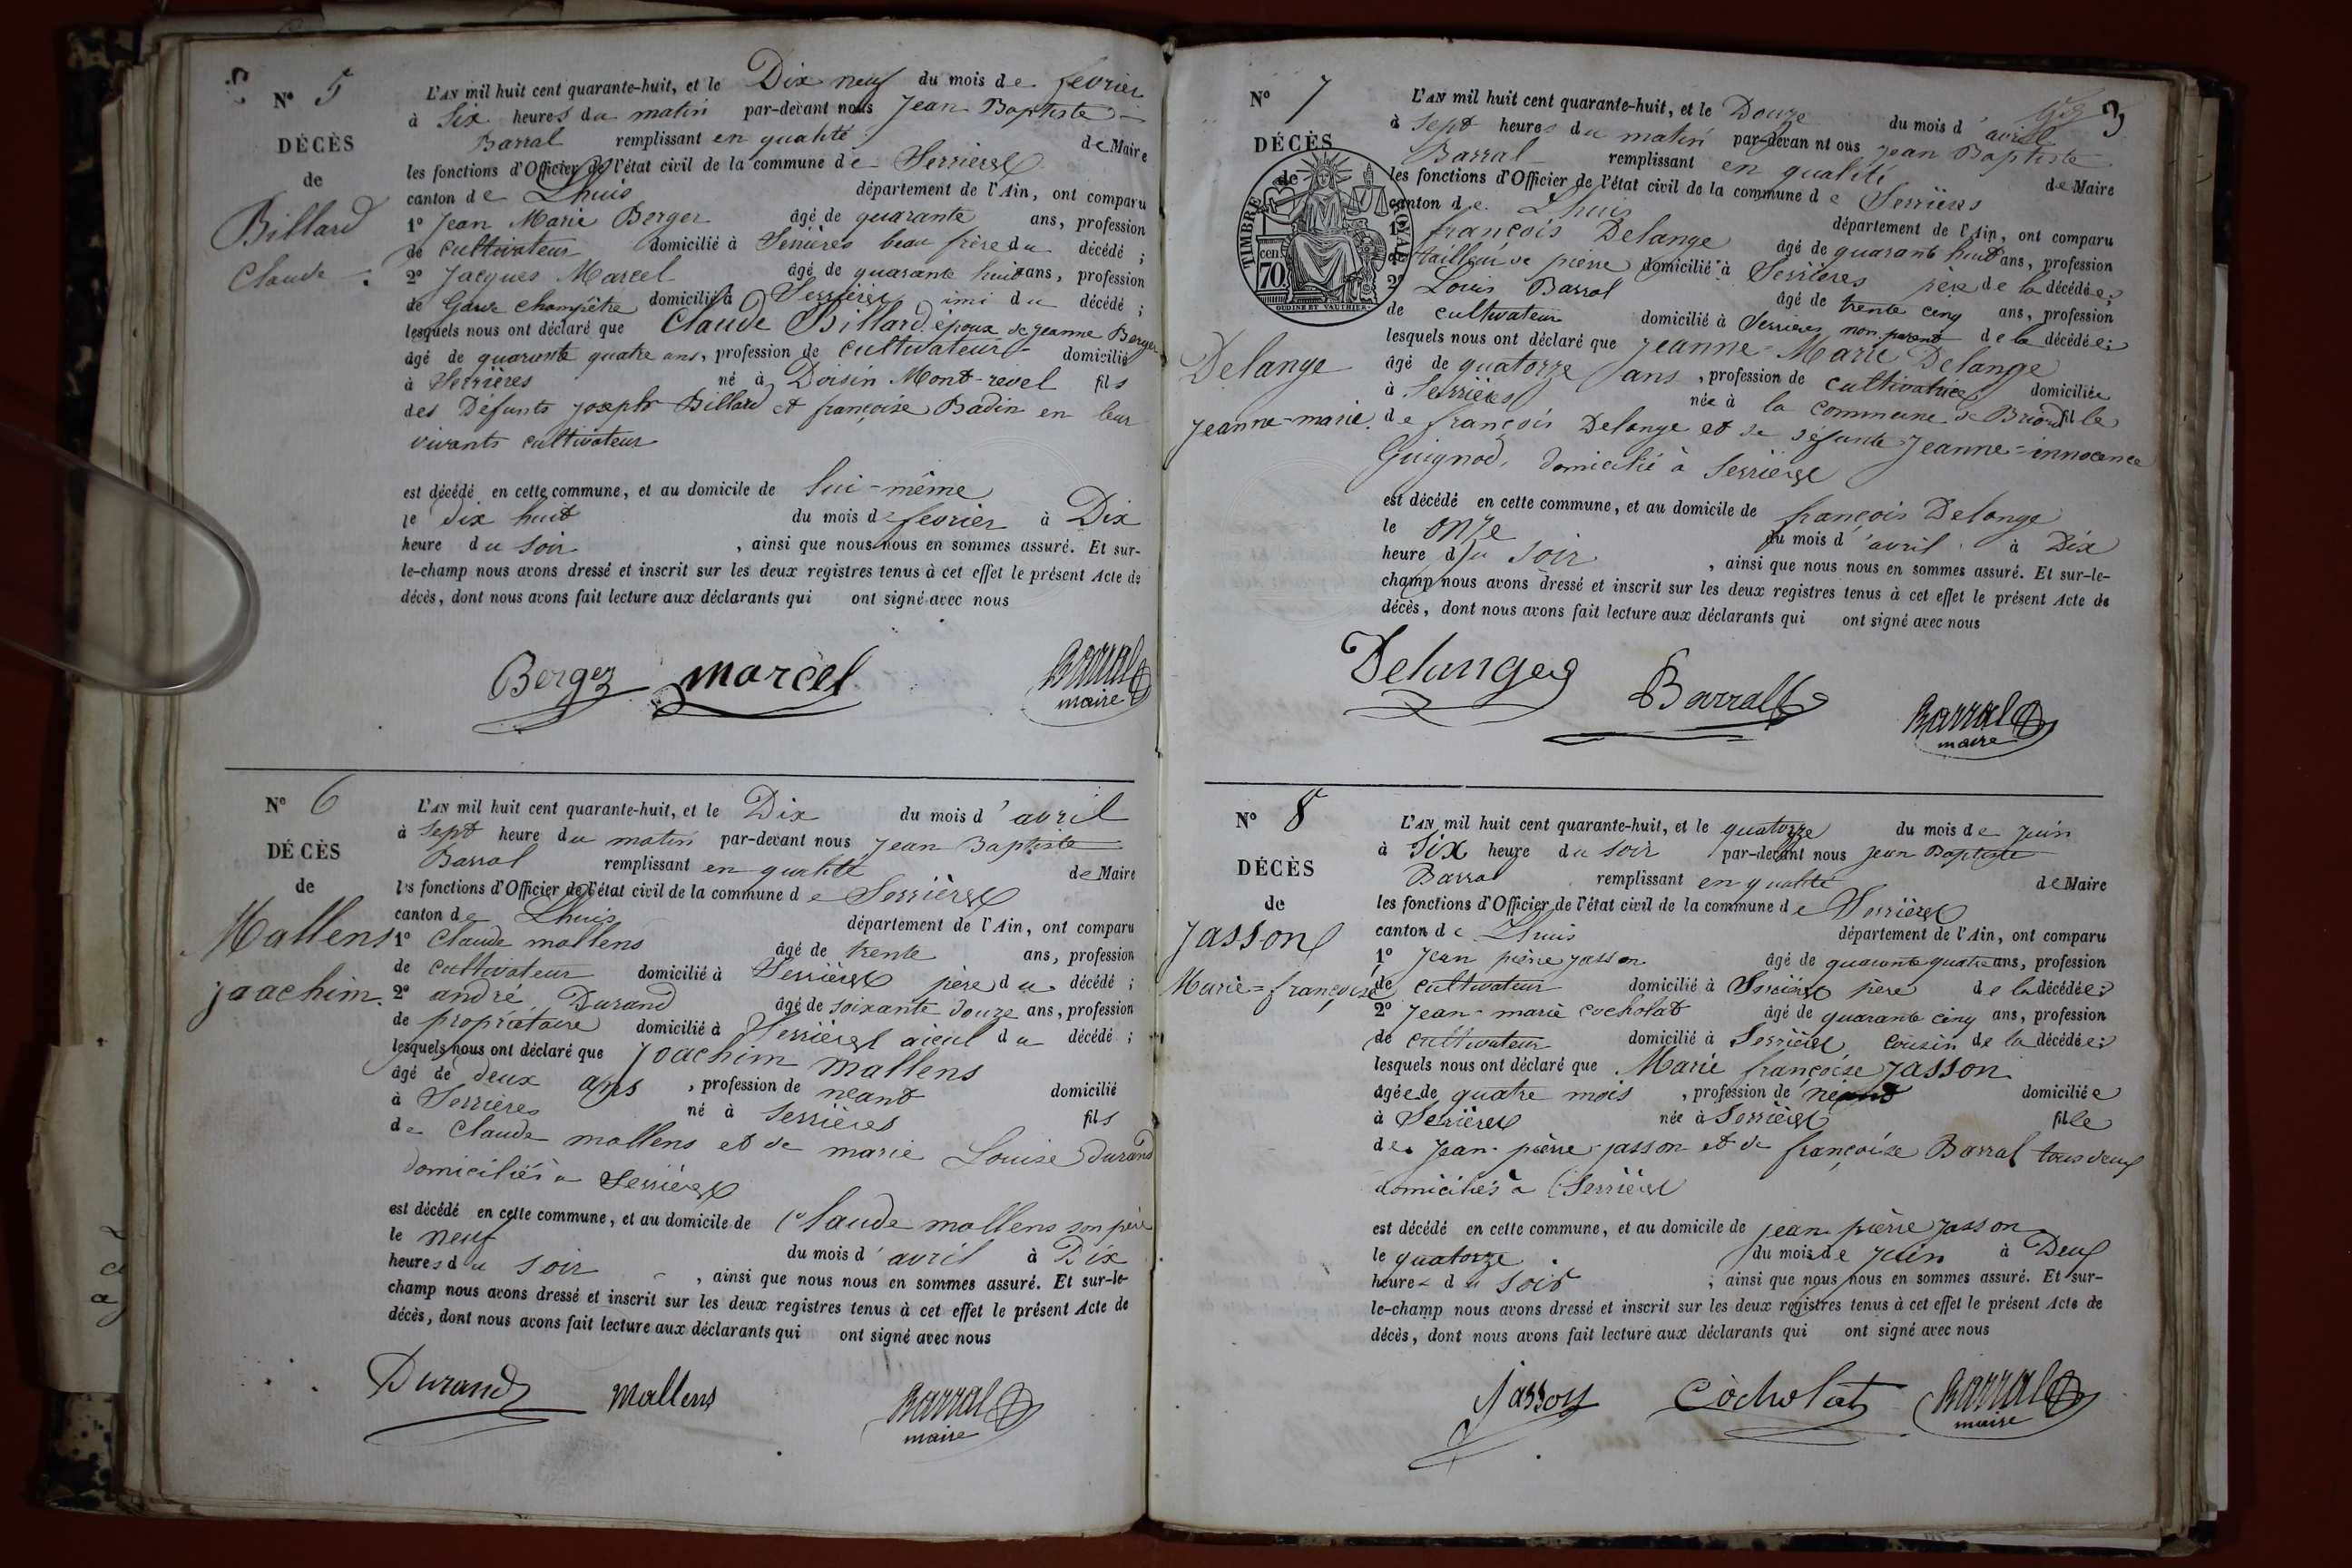 N° 5
DÉCÈS
de
Billard
Claude
L'AN mil huit cent quarante-huit, et le Dix neuf du mois de fevrier
à Six heures du matin par-devant nous Jean Baptiste
Barral remplissant en qualité de Maire
les fonctions d'Officier de l'état civil de la commune de Serrieres
canton de Lhuis département de l'Ain, ont comparu
1° Jean Marie Berger âgé de quarante ans, profession
de cultivateur domicilié à Serrières beau frère du décédé ;
2° Jacques Marcel âgé de quarante huit ans, profession
de Garde champêtre domicilié à Serrières ami du décédé ;
lesquels nous ont déclaré que Claude Billard époux de jeanne Berger
âgé de quarante quatre ans, profession de cultivateur domicilié
à Serrières né à Doisin Mont-revel fils
des Défunts joseph Billard et françoise Badin en leur
vivants cultivateur
est décédé en cette commune, et au domicile de lui-même
le dix huit du mois de fevrier à Dix
heure du soir , ainsi que nous nous en sommes assuré. Et sur-
le-champ nous avons dressé et inscrit sur les deux registres tenus à cet effet le présent Acte de
décès, dont nous avons fait lecture aux déclarants qui ont signé avec nous
Berger marcel Barral
maire
N° 6
DÉCÈS
de
Mallens
joachim.
L'AN mil huit cent quarante-huit, et le Dix du mois d'avril
à Sept heure du matin par-devant nous Jean Baptiste
Barral remplissant en qualité de Maire
les fonctions d'Officier de l'état civil de la commune de Serrières
canton de Lhuis département de l'Ain, ont comparu
1° Claude mallens âgé de trente ans, profession
de cultivateur domicilié à Serrières père du décédé ;
2° andré Durand âgé de soixante douze ans, profession
de propriétaire domicilié à Serrières aïeul du décédé ;
lesquels nous ont déclaré que Joachim Mallens
âgé de deux ans , profession de neant domicilié
à Serrières né à Serrières fils
de Claude mallens et de marie Louise Durand
domiciliés à Serrières
est décédé en cette commune, et au domicile de Claude mallens son père
le neuf du mois d'avril à Dix
heures du soir , ainsi que nous nous en sommes assuré. Et sur-le-
champ nous avons dressé et inscrit sur les deux registres tenus à cet effet le présent Acte de
décès, dont nous avons fait lecture aux déclarants qui ont signé avec nous
Durand Mallens Barral
maire
3
N° 7
DÉCÈS
de
TIMBRE ROYAL
cen
70
OUDINÉ ET VAUTHIER
Delange
Jeanne-marie.
L'AN mil huit cent quarante-huit, et le Douze du mois d'avril
à Sept heures du matin par-devan nt ous Jean Baptiste
Barral remplissant en qualité de Maire
les fonctions d'Officier de l'état civil de la commune de Serrières
canton de Lhuis département de l'Ain, ont comparu
1° françois Delange âgé de quarante huit ans, profession
de tailleur de pierre domicilié à Serrières père de la décédée ;
2° Louis Barral âgé de trente cinq ans, profession
de cultivateur domicilié à Serrières non parent de la décédée ;
lesquels nous ont déclaré que Jeanne-Marie Delange
âgé de quatorze ans , profession de cultivatrice domiciliée
à Serrières née à la commune de Briord fille
de françois Delange et de défunte Jeanne-innocence
Guignod, domicilié à Serrières
est décédé en cette commune, et au domicile de françois Delange
le onze du mois d'avril à Dix
heure du soir , ainsi que nous nous en sommes assuré. Et sur-le-
champ nous avons dressé et inscrit sur les deux registres tenus à cet effet le présent Acte de
décès, dont nous avons fait lecture aux déclarants qui ont signé avec nous
Delange Barral
Barral
maire
N° 8
DÉCÈS
de
Jasson
Marie-françoise
L'AN mil huit cent quarante-huit, et le quatorze du mois de Juin
à Six heure du soir par-devant nous Jean Baptiste
Barral remplissant en qualité de Maire
les fonctions d'Officier de l'état civil de la commune de Serrières
canton de Lhuis département de l'Ain, ont comparu
1° Jean pierre Jasson âgé de quarante quatre ans, profession
de cultivateur domicilié à Serrières père de la décédée ;
2° Jean-marie Cocholat âgé de quarante cinq ans, profession
de cultivateur domicilié à Serrières cousin de la décédée ;
lesquels nous ont déclaré que Marie françoise Jasson
âgée de quatre mois , profession de néant domiciliée
à Serrières née à Serrières fille
de Jean-pierre jasson et de françoise Barral tous deux
domiciliés à Serrières
est décédé en cette commune, et au domicile de jean pierre Jasson
le quatorze du mois de Juin à Deux
heure du soir ; ainsi que nous nous en sommes assuré. Et sur-
le-champ nous avons dressé et inscrit sur les deux registres tenus à cet effet le présent Acte de
décès, dont nous avons fait lecture aux déclarants qui ont signé avec nous
Jasson Cocholat Barral
maire